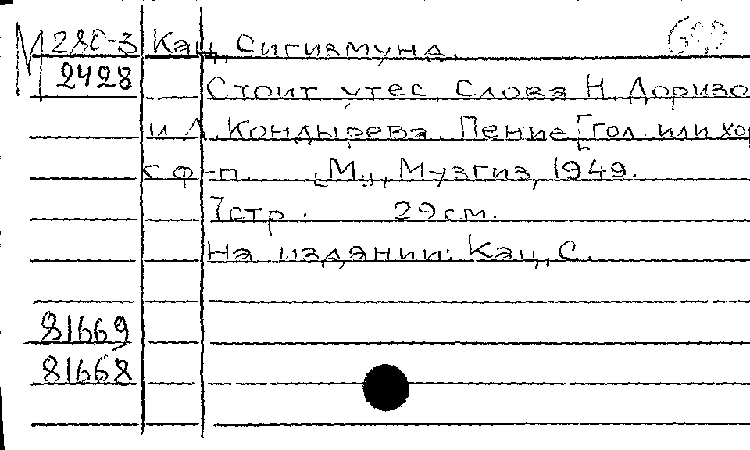 М 280-3 Кац, Сигизмунд.
2428
Стоит утес. Слова Н. Доризо
и Л. Кондырева. Пение [гол. или хор
с ф-п. [М.], Музгиз, 1949.
7 стр. 29 см.
На издании: Кац, С.
81669
81668